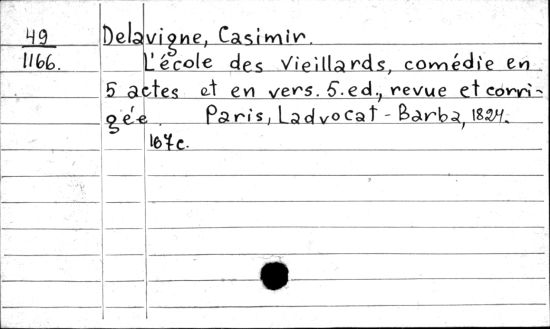 49
1166.
Delavigne, Casimir.
L'école des Vieillards, comédie en
5 actes et en vers. 5.ed., revue et corri-
gée. Paris, Ladvocat - Barba, 1824.
167c.